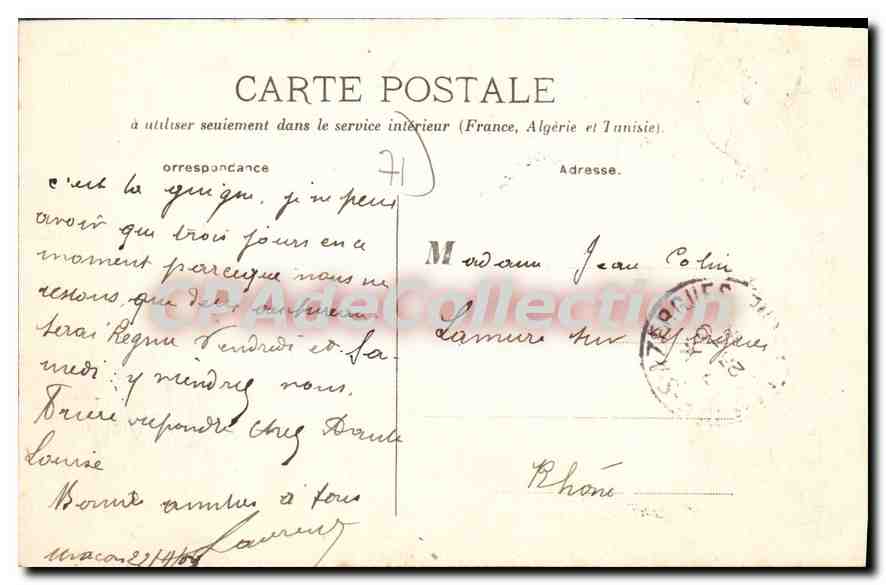 CARTE POSTALE
à utiliser seulement dans le service intérieur (France, Algérie et Tunisie).
orrespondance
71
Adresse.
c'est la guigne, je ne peux
avoir que trois jours en ce
moment parceque nous ne
restons que deux
serai Vendredi et Sa-
medi: y viendrez nous.
Prière répondre chez Tante
Louise
Bonnes amitiés à tous
Laurent
Macon 22/4/09
Madame Jean Colin
Lamure sur Azergues
Rhône
CPA de Collection